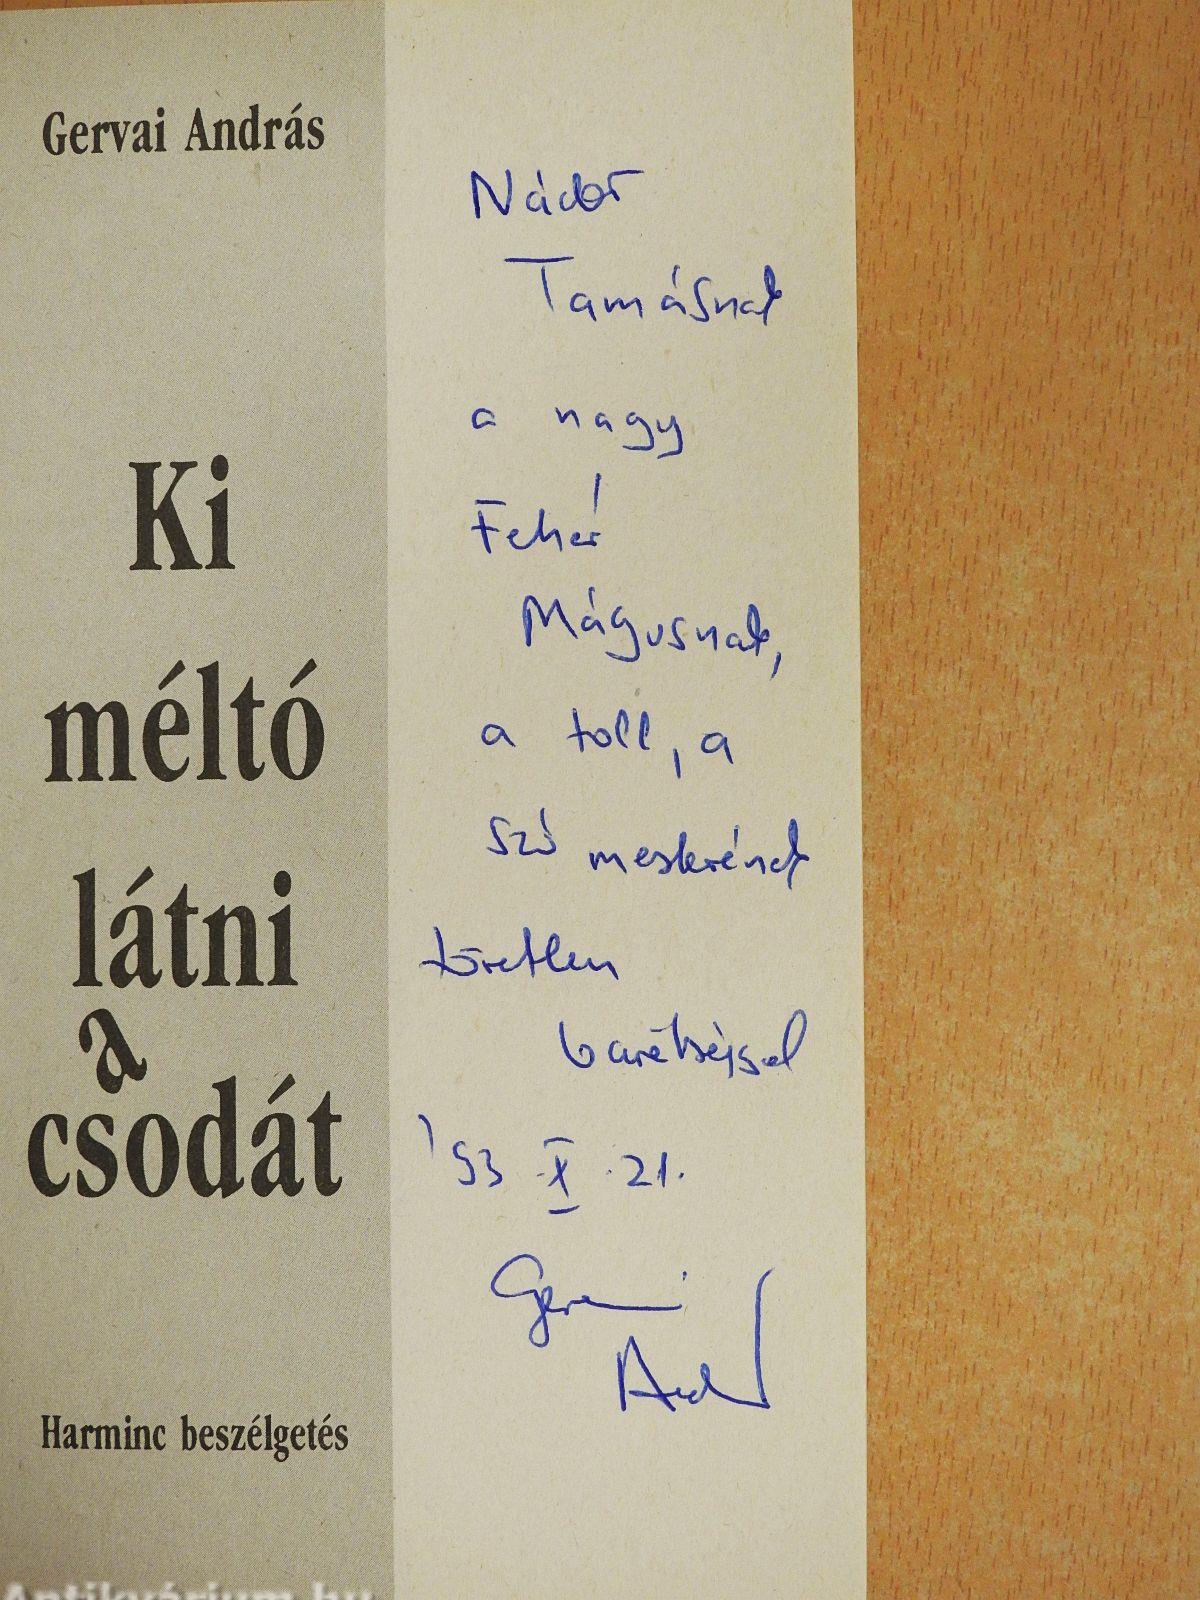 Gervai András
Ki
méltó
látni
a
csodát
Harminc beszélgetés
Nádor
Tamásnak
a nagy
Fehér
Mágusnak,
a toll, a
szó mesterének
töretlen
barátsággal
'93 X. 21.
Gervai
András
Antikvárium.hu